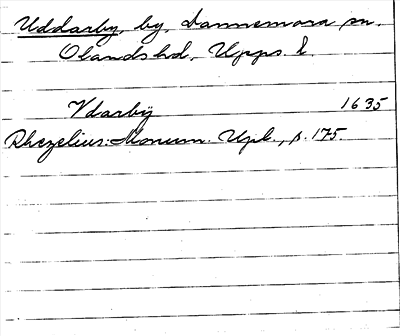 Uddarby, by, Dannemora sn.
Olandshd, Upps. l.
Ydarbÿ 1635
Rhezelius: Monum. Upl., s. 175.